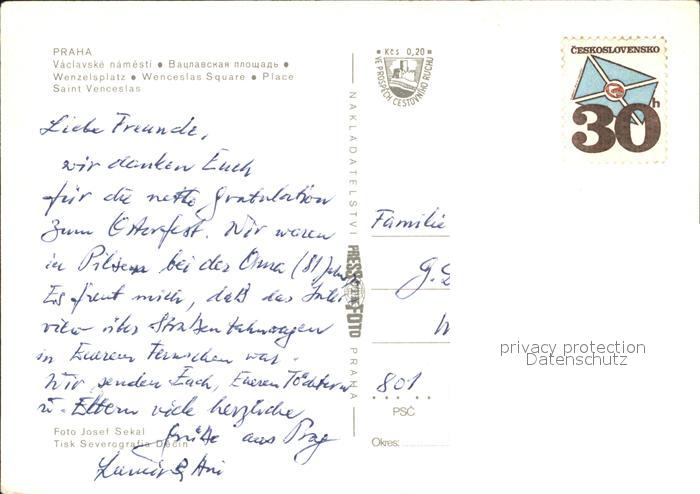 PRAHA
Václavské náměstí • Вацлавская площадь •
Wenzelsplatz • Wenceslas Square • Place
Saint Venceslas
Liebe Freunde,
wir danken Euch
für die nette Gratulation
zum Osterfest. Wir waren
in Pilsen bei der Oma (81 Jahre)
Es freut mich, daß das Inter
view über Straßenbahnwagen
in Eurem Fernsehen war.
Wir senden Euch, Eueren Töchtern
u. Eltern viele herzliche
Grüße aus Prag
Foto Josef Sekal
Tisk Severografia Děčín
NAKLADATELSTVÍ
PRESSFOTO
PRAHA
Kčs 0,20
VE PROSPĚCH CESTOVNÍHO RUCHU
ČESKOSLOVENSKO
30 h
Familie
G.
801
PSČ
Okres:
privacy protection
Datenschutz